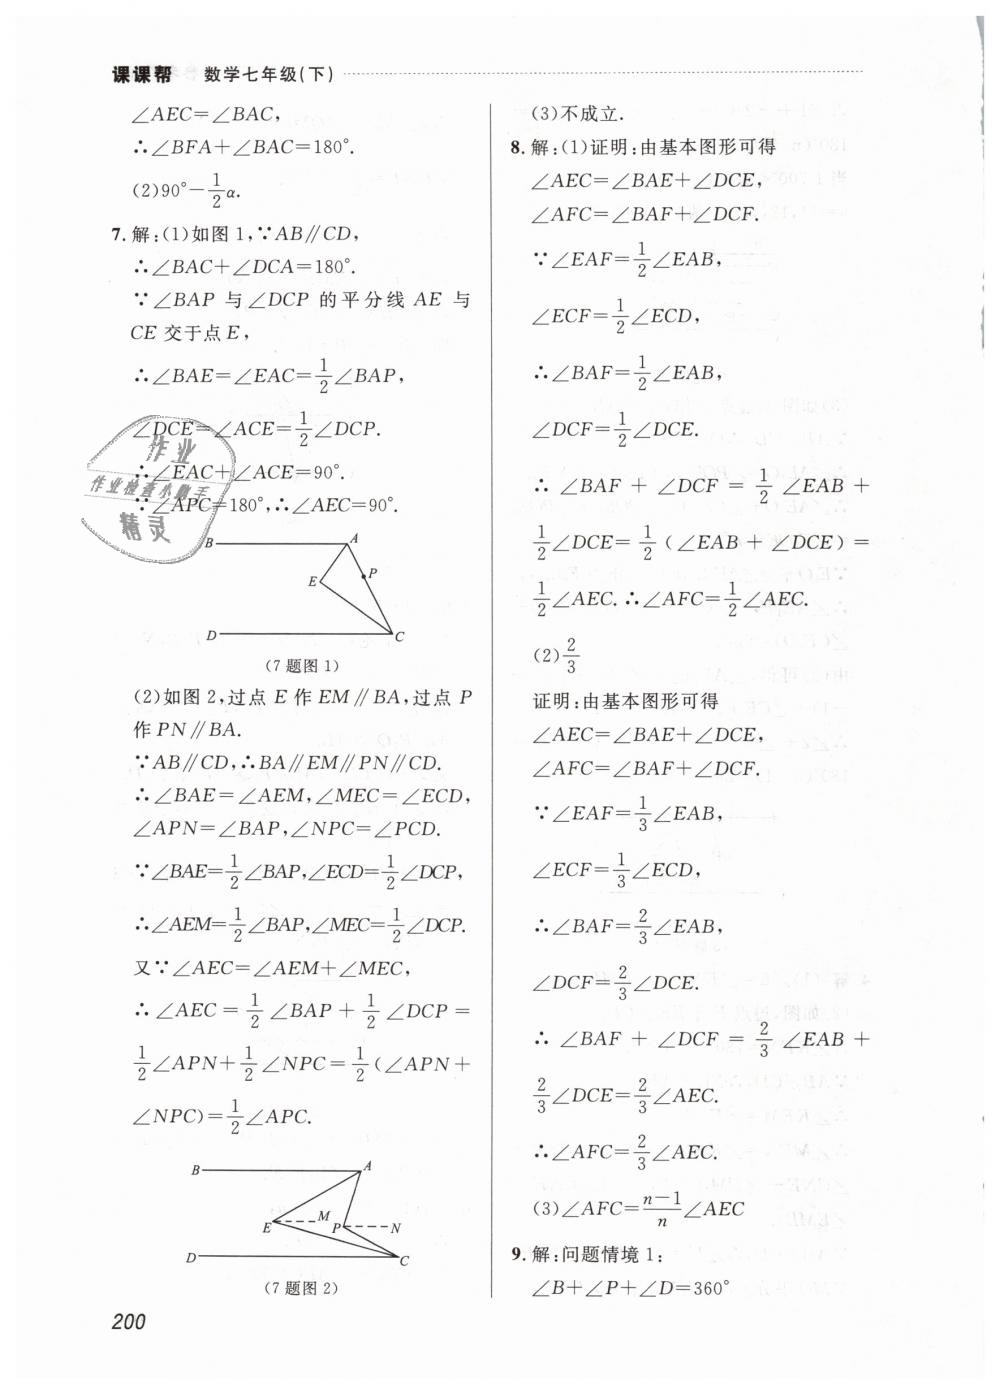 课课帮 数学七年级(下)
∠AEC=∠BAC,
∴∠BFA+∠BAC=180°.
(2)90°-1/2α.
7.解:(1)如图1,∵AB∥CD,
∴∠BAC+∠DCA=180°.
∵∠BAP 与∠DCP 的平分线 AE 与
CE 交于点E,
∴∠BAE=∠EAC=1/2∠BAP,
∠DCE=∠ACE=1/2∠DCP.
∴∠EAC+∠ACE=90°.
∵∠APC=180°,∴∠AEC=90°.
作业
作业检查小助手
精灵
B A
E P
D C
(7题图1)
(2)如图2,过点 E 作 EM∥BA,过点 P
作PN∥BA.
∵AB∥CD,∴BA∥EM∥PN∥CD.
∴∠BAE=∠AEM,∠MEC=∠ECD,
∠APN=∠BAP,∠NPC=∠PCD.
∵∠BAE=1/2∠BAP,∠ECD=1/2∠DCP,
∴∠AEM=1/2∠BAP,∠MEC=1/2∠DCP.
又∵∠AEC=∠AEM+∠MEC,
∴∠AEC=1/2∠BAP+1/2∠DCP=
1/2∠APN+1/2∠NPC=1/2(∠APN+
∠NPC)=1/2∠APC.
B A
E M P N
D C
(7题图2)
200
(3)不成立.
8.解:(1)证明:由基本图形可得
∠AEC=∠BAE+∠DCE,
∠AFC=∠BAF+∠DCF.
∵∠EAF=1/2∠EAB,
∠ECF=1/2∠ECD,
∴∠BAF=1/2∠EAB,
∠DCF=1/2∠DCE.
∴∠BAF+∠DCF=1/2∠EAB+
1/2∠DCE=1/2(∠EAB+∠DCE)=
1/2∠AEC.∴∠AFC=1/2∠AEC.
(2)2/3
证明:由基本图形可得
∠AEC=∠BAE+∠DCE,
∠AFC=∠BAF+∠DCF.
∵∠EAF=1/3∠EAB,
∠ECF=1/3∠ECD,
∴∠BAF=2/3∠EAB,
∠DCF=2/3∠DCE.
∴∠BAF+∠DCF=2/3∠EAB+
2/3∠DCE=2/3∠AEC.
∴∠AFC=2/3∠AEC.
(3)∠AFC=n-1/n∠AEC
9.解:问题情境1:
∠B+∠P+∠D=360°